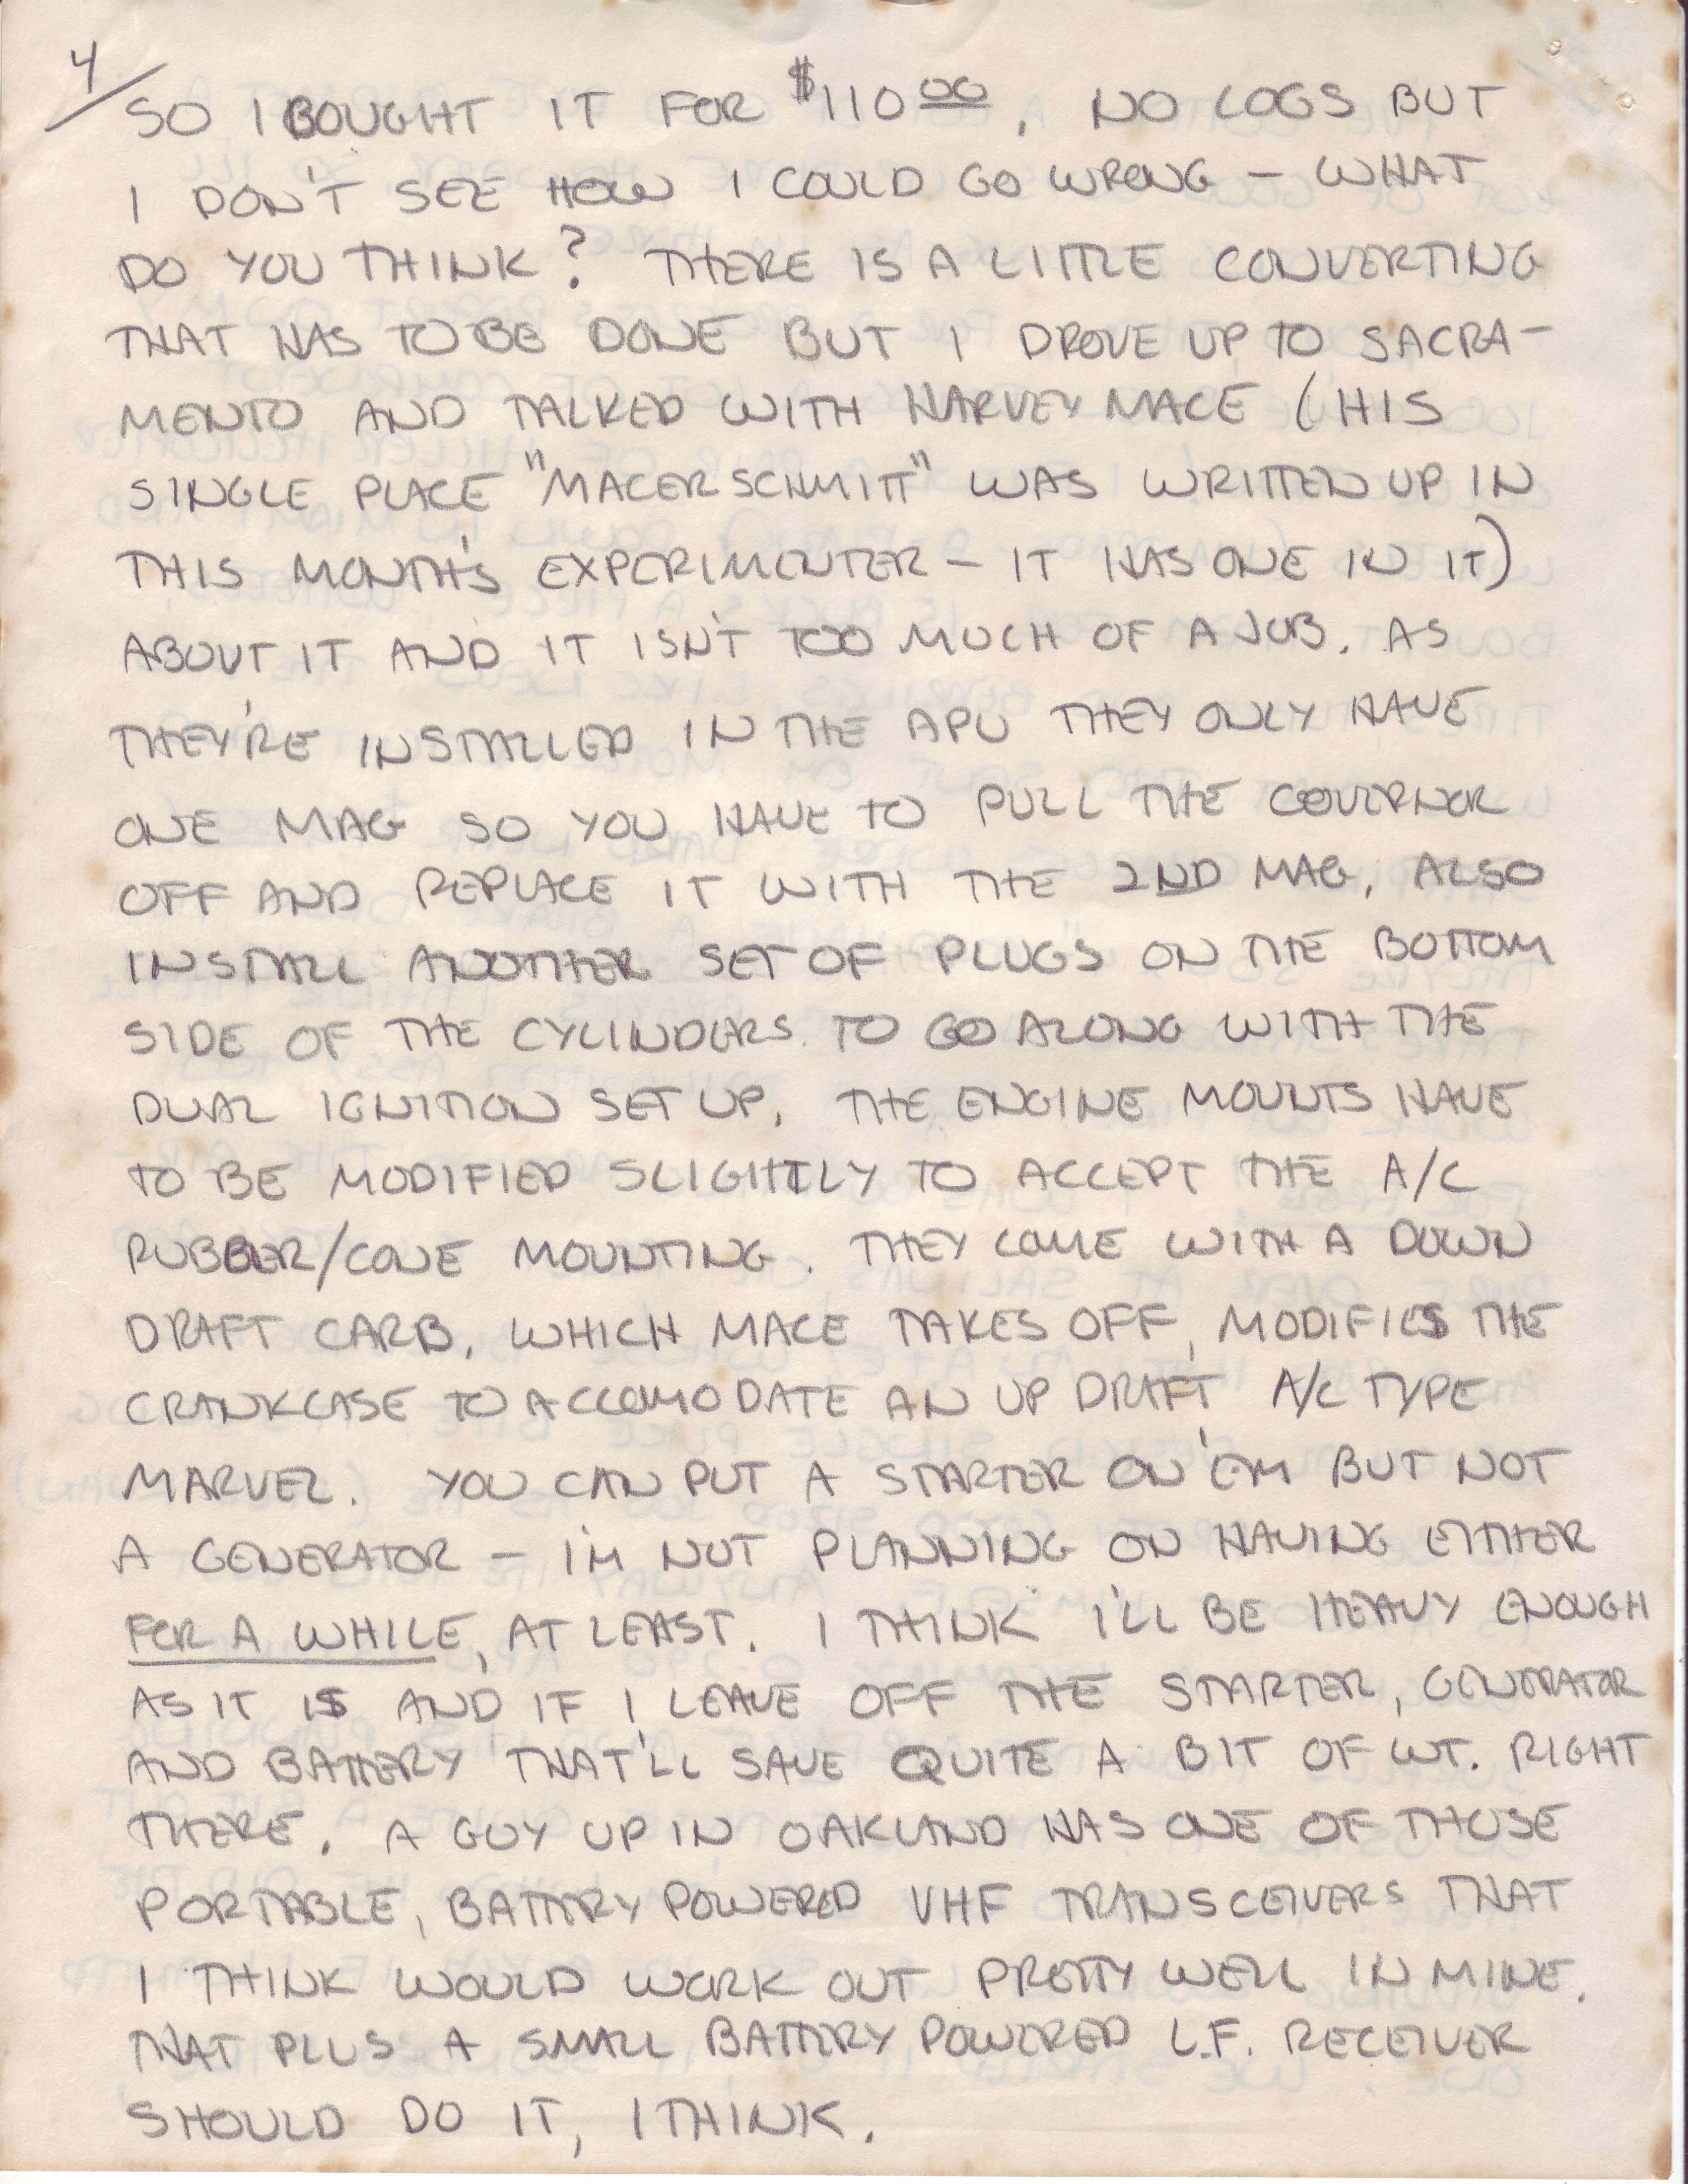 4/
SO I BOUGHT IT FOR $110 00, NO LOGS BUT
I DON'T SEE HOW I COULD GO WRONG – WHAT
DO YOU THINK? THERE IS A LITTLE CONVERTING
THAT HAS TO BE DONE BUT I DROVE UP TO SACRA-
MENTO AND TALKED WITH HARVEY MACE (HIS
SINGLE PLACE "MACERSCHMITT" WAS WRITTEN UP IN
THIS MONTH'S EXPERIMENTER – IT HAS ONE IN IT)
ABOUT IT AND IT ISN'T TOO MUCH OF A JOB. AS
THEY'RE INSTALLED IN THE APU THEY ONLY HAVE
ONE MAG SO YOU HAVE TO PULL THE GOVERNOR
OFF AND REPLACE IT WITH THE 2ND MAG, ALSO
INSTALL ANOTHER SET OF PLUGS ON THE BOTTOM
SIDE OF THE CYLINDERS TO GO ALONG WITH THE
DUAL IGNITION SET UP, THE ENGINE MOUNTS HAVE
TO BE MODIFIED SLIGHTLY TO ACCEPT THE A/C
RUBBER/CONE MOUNTING. THEY COME WITH A DOWN
DRAFT CARB, WHICH MACE TAKES OFF, MODIFIES THE
CRANKCASE TO ACCOMODATE AN UP DRAFT A/C TYPE
MARVEL. YOU CAN PUT A STARTER ON 'EM BUT NOT
A GENERATOR – I'M NOT PLANNING ON HAVING EITHER
FOR A WHILE, AT LEAST. I THINK I'LL BE HEAVY ENOUGH
AS IT IS AND IF I LEAVE OFF THE STARTER, GENERATOR
AND BATTERY THAT'LL SAVE QUITE A BIT OF WT. RIGHT
THERE. A GUY UP IN OAKLAND HAS ONE OF THOSE
PORTABLE, BATTERY POWERED VHF TRANSCEIVERS THAT
I THINK WOULD WORK OUT PRETTY WELL IN MINE.
THAT PLUS A SMALL BATTERY POWERED L.F. RECEIVER
SHOULD DO IT, I THINK.